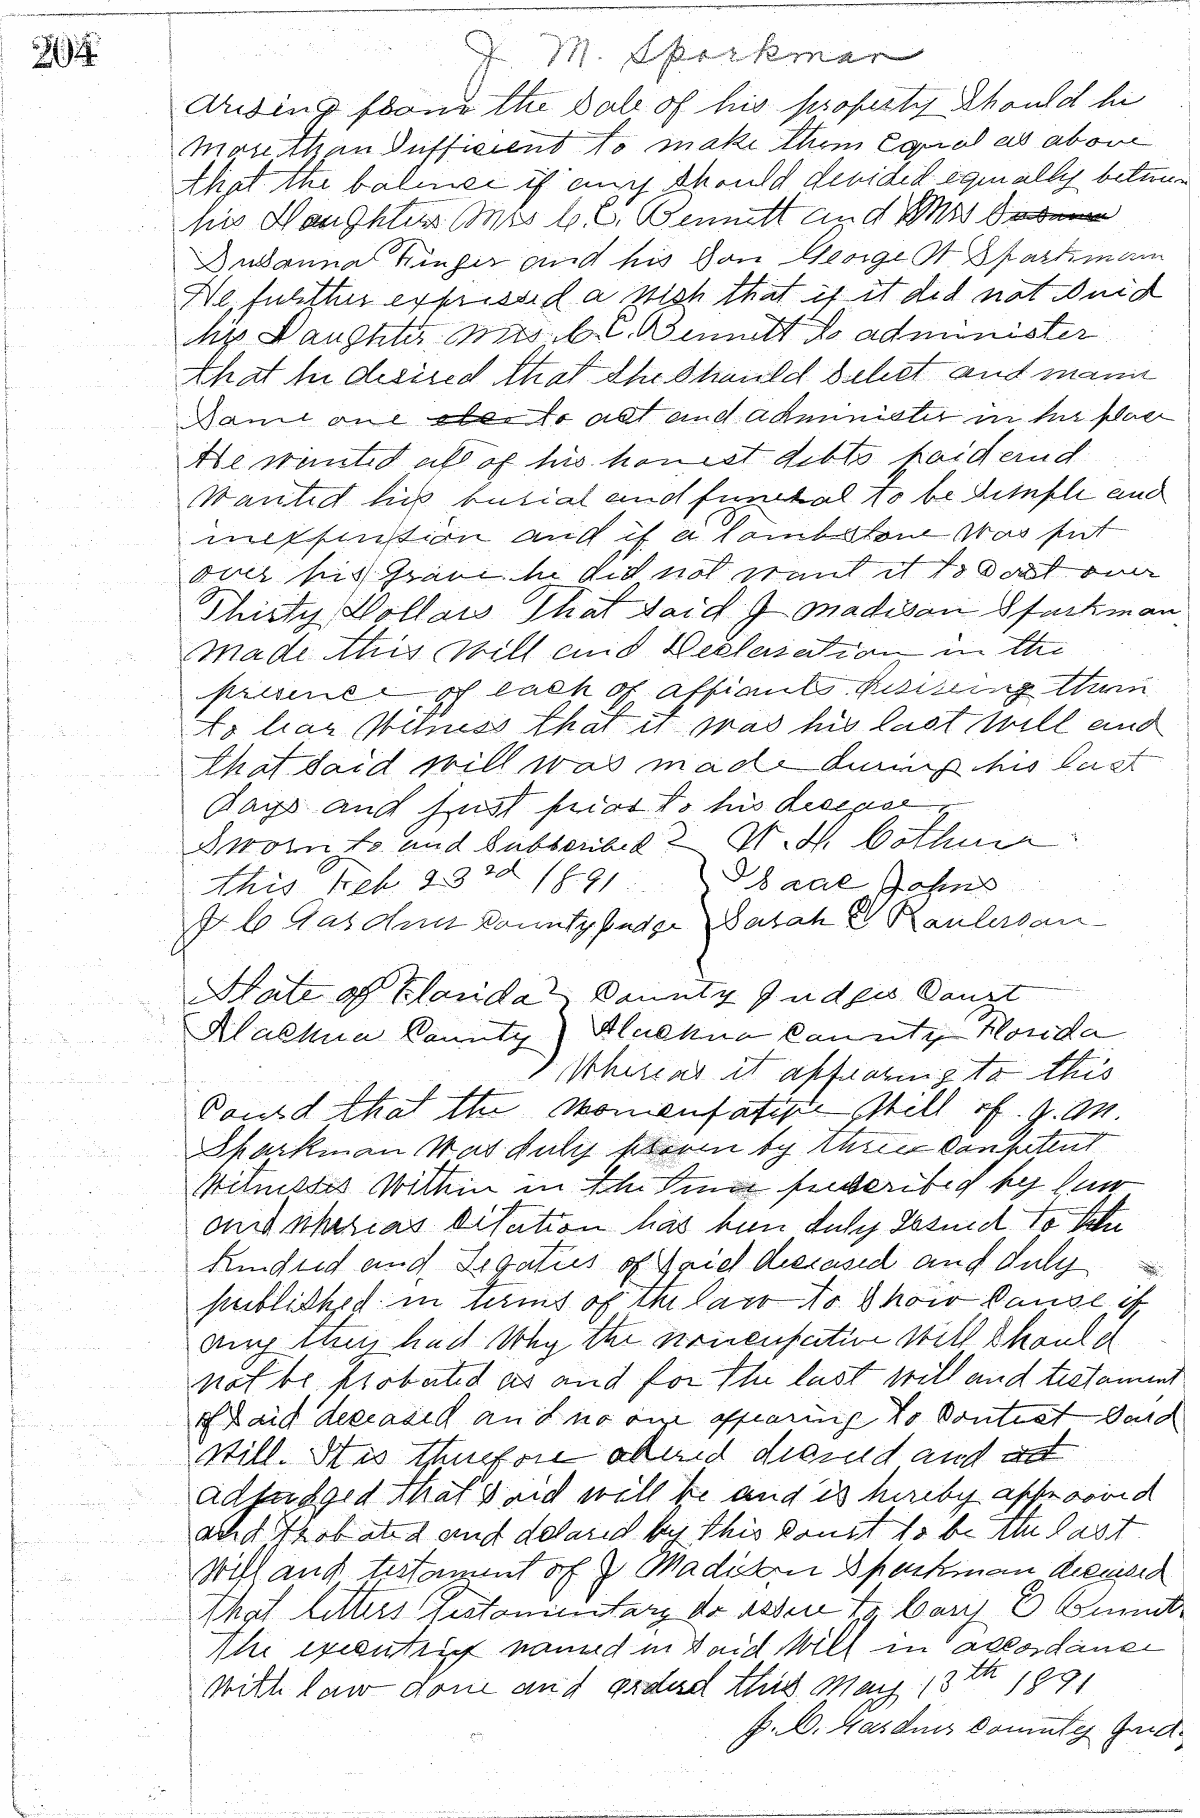 204
J M. Sparkman
arising from the Sale of his property Should be
more than Sufficient to make them Equal as above
that the balence if any Should devided equally between
his Daughters Mrs C. E. Bennett and Mrs Susanna
Susanna Finger and his Son George W Sparkman
He further expressed a wish that if it did not Suid
his Daughter Mrs C. E. Bennett to administer
that he desired that She Should Select and name
Some one else to act and administer in her place
He wanted all of his honest debts paid and
wanted his burial and funeral to be Simple and
inexpension and if a Tombstone was put
over his Grave he did not want it to Cost over
Thirty Dollars That Said J Madison Sparkman
made this Will and Declaration in the
presence of each of affiants desireing them
to bear Witness that it was his last Will and
that Said will was made during his last
days and just prior to his decease.
Sworn to and Subscribed W. H.
this Feb 23rd 1891 Isaac Johns
J C Gardner County Judge Sarah E Raulerson
State of Florida County Judges Court
Alachua County Alachua County Florida
Whereas it appearing to this
Courd that the Noncupative Will of J. M.
Sparkman was duly proven by three Conpetent
Witnesses Within in the time prescribed by law
and whereas Citation has been duly Issued to the
Kindred and Legaties of Said deceased and duly
published in terms of the law to Show Cause if
any they had Why the noncupative Will Should
not be probated as and for the last will and testament
of Said deceased and no one appearing to Contest Said
Will. It is therefore odered decreed and ad
adjudged that Said will be and is hereby approoved
and Probated and delared by this Court to be the last
Will and testament of J Madison Sparkman deceased
that letters Testamentary do issue to Cary E Bennett
the executrix named in Said Will in accordance
with law done and ordered this May 13th 1891
J. C. Gardner County Jud